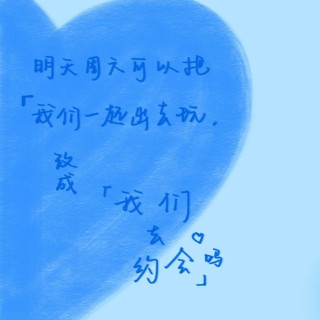 明天周六可以把
「我们一起出去玩,
改成
「我们
去♡
约会吗
」